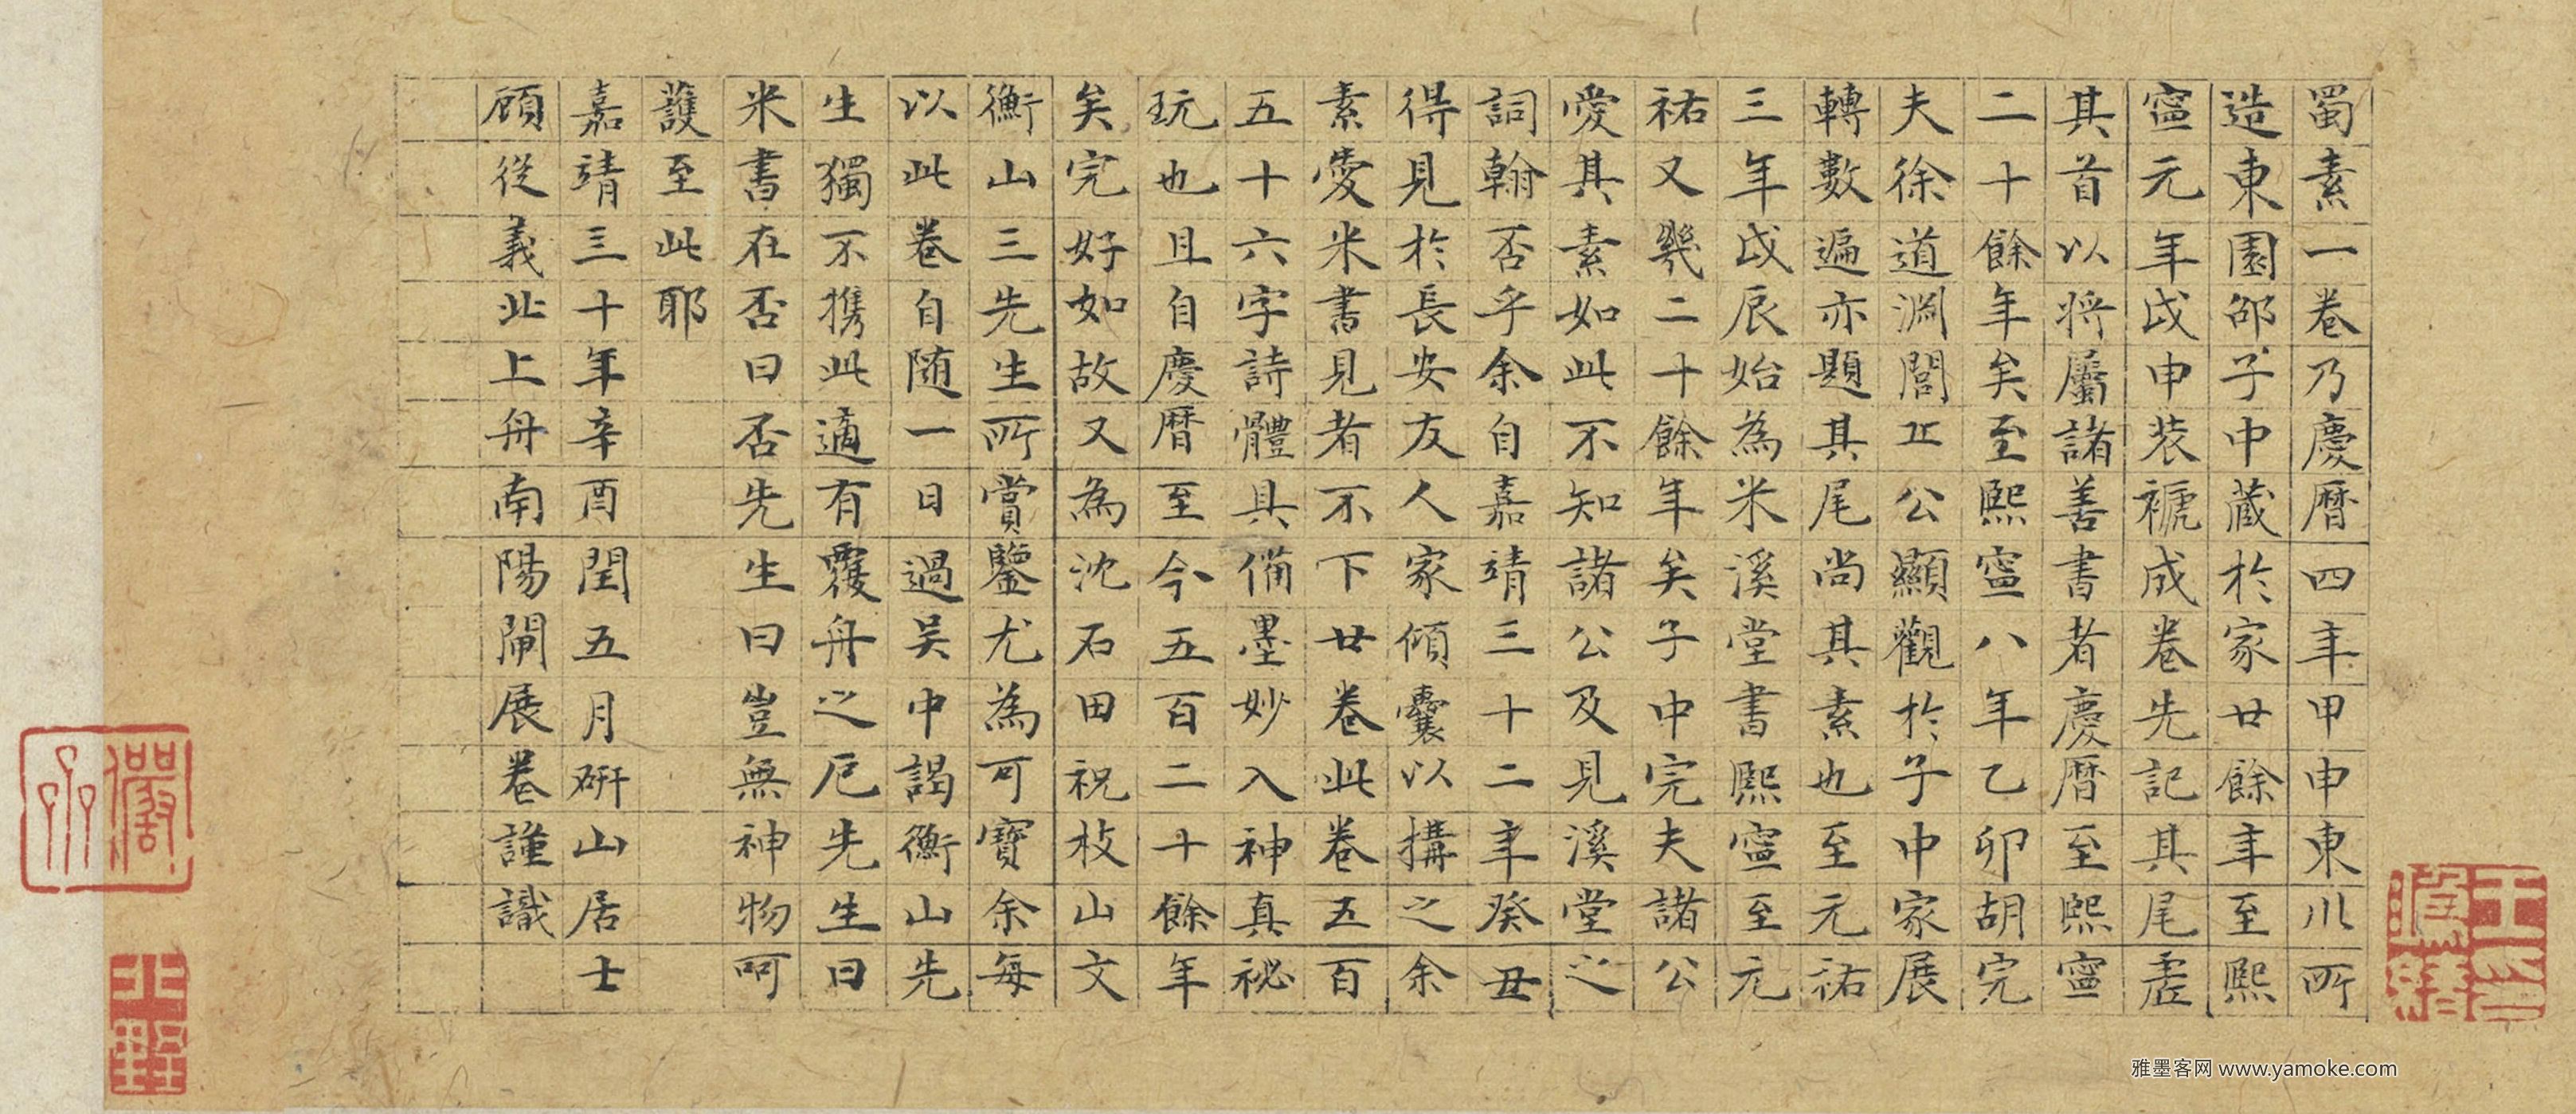 蜀素一卷乃慶曆四年甲申東川所
造東園邵子中藏於家廿餘年至熙
寧元年戊申裝褫成卷先記其尾虗
其首以將屬諸善書者慶曆至熙寧
二十餘年矣至熙寧八年乙卯胡完
夫徐道淵閭丘公顯觀於子中家展
轉數遍亦題其尾尚其素也至元祐
三年戊辰始為米溪堂書熙寧至元
祐又幾二十餘年矣子中完夫諸公
愛其素如此不知諸公及見溪堂之
詞翰否乎余自嘉靖三十二年癸丑
得見於長安友人家傾囊以搆之余
素愛米書見者不下廿卷此卷五百
五十六字詩體具備墨妙入神真祕
玩也且自慶曆至今五百二十餘年
矣完好如故又為沈石田祝枝山文
衡山三先生所賞鑒尤為可寶余每
以此卷自随一日過吴中謁衡山先
生獨不携此適有覆舟之厄先生曰
米書在否曰否先生曰豈無神物呵
護至此耶
嘉靖三十年辛酉閏五月研山居士
顧從義北上舟南陽閘展卷謹識
雅墨客网 www.yamoke.com